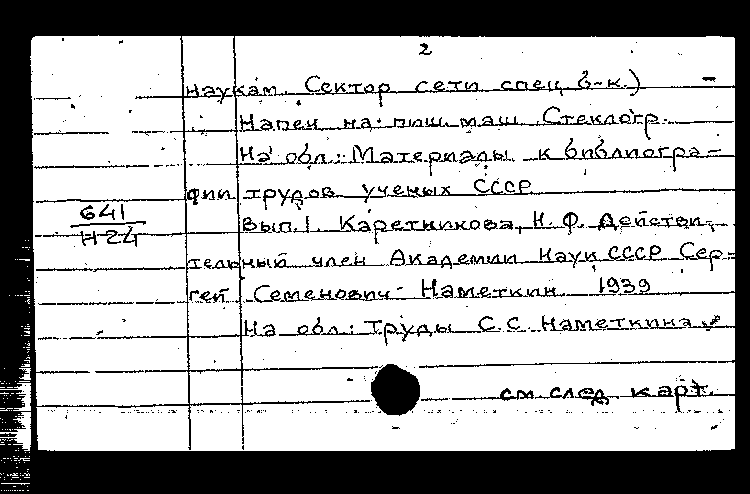 2
наукам. Сектор сети спец. б-к.)
Напеч. на пиш. маш. Стеклогр.
На обл.: Материалы к библиогра-
фии трудов ученых СССР
641
Н24
Вып. 1. Каретникова, Н. Ф. Действи-
тельный член Академии Наук СССР Сер-
гей Семенович Наметкин. 1939
На обл.: Труды С. С. Наметкина
см. след. карт.